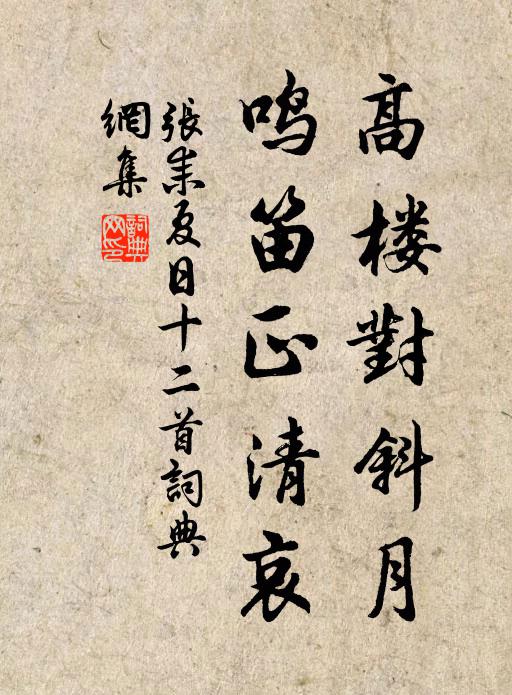 高楼對斜月
鸣笛正清哀
張耒夏日十二首詞典
網集
詞典网印